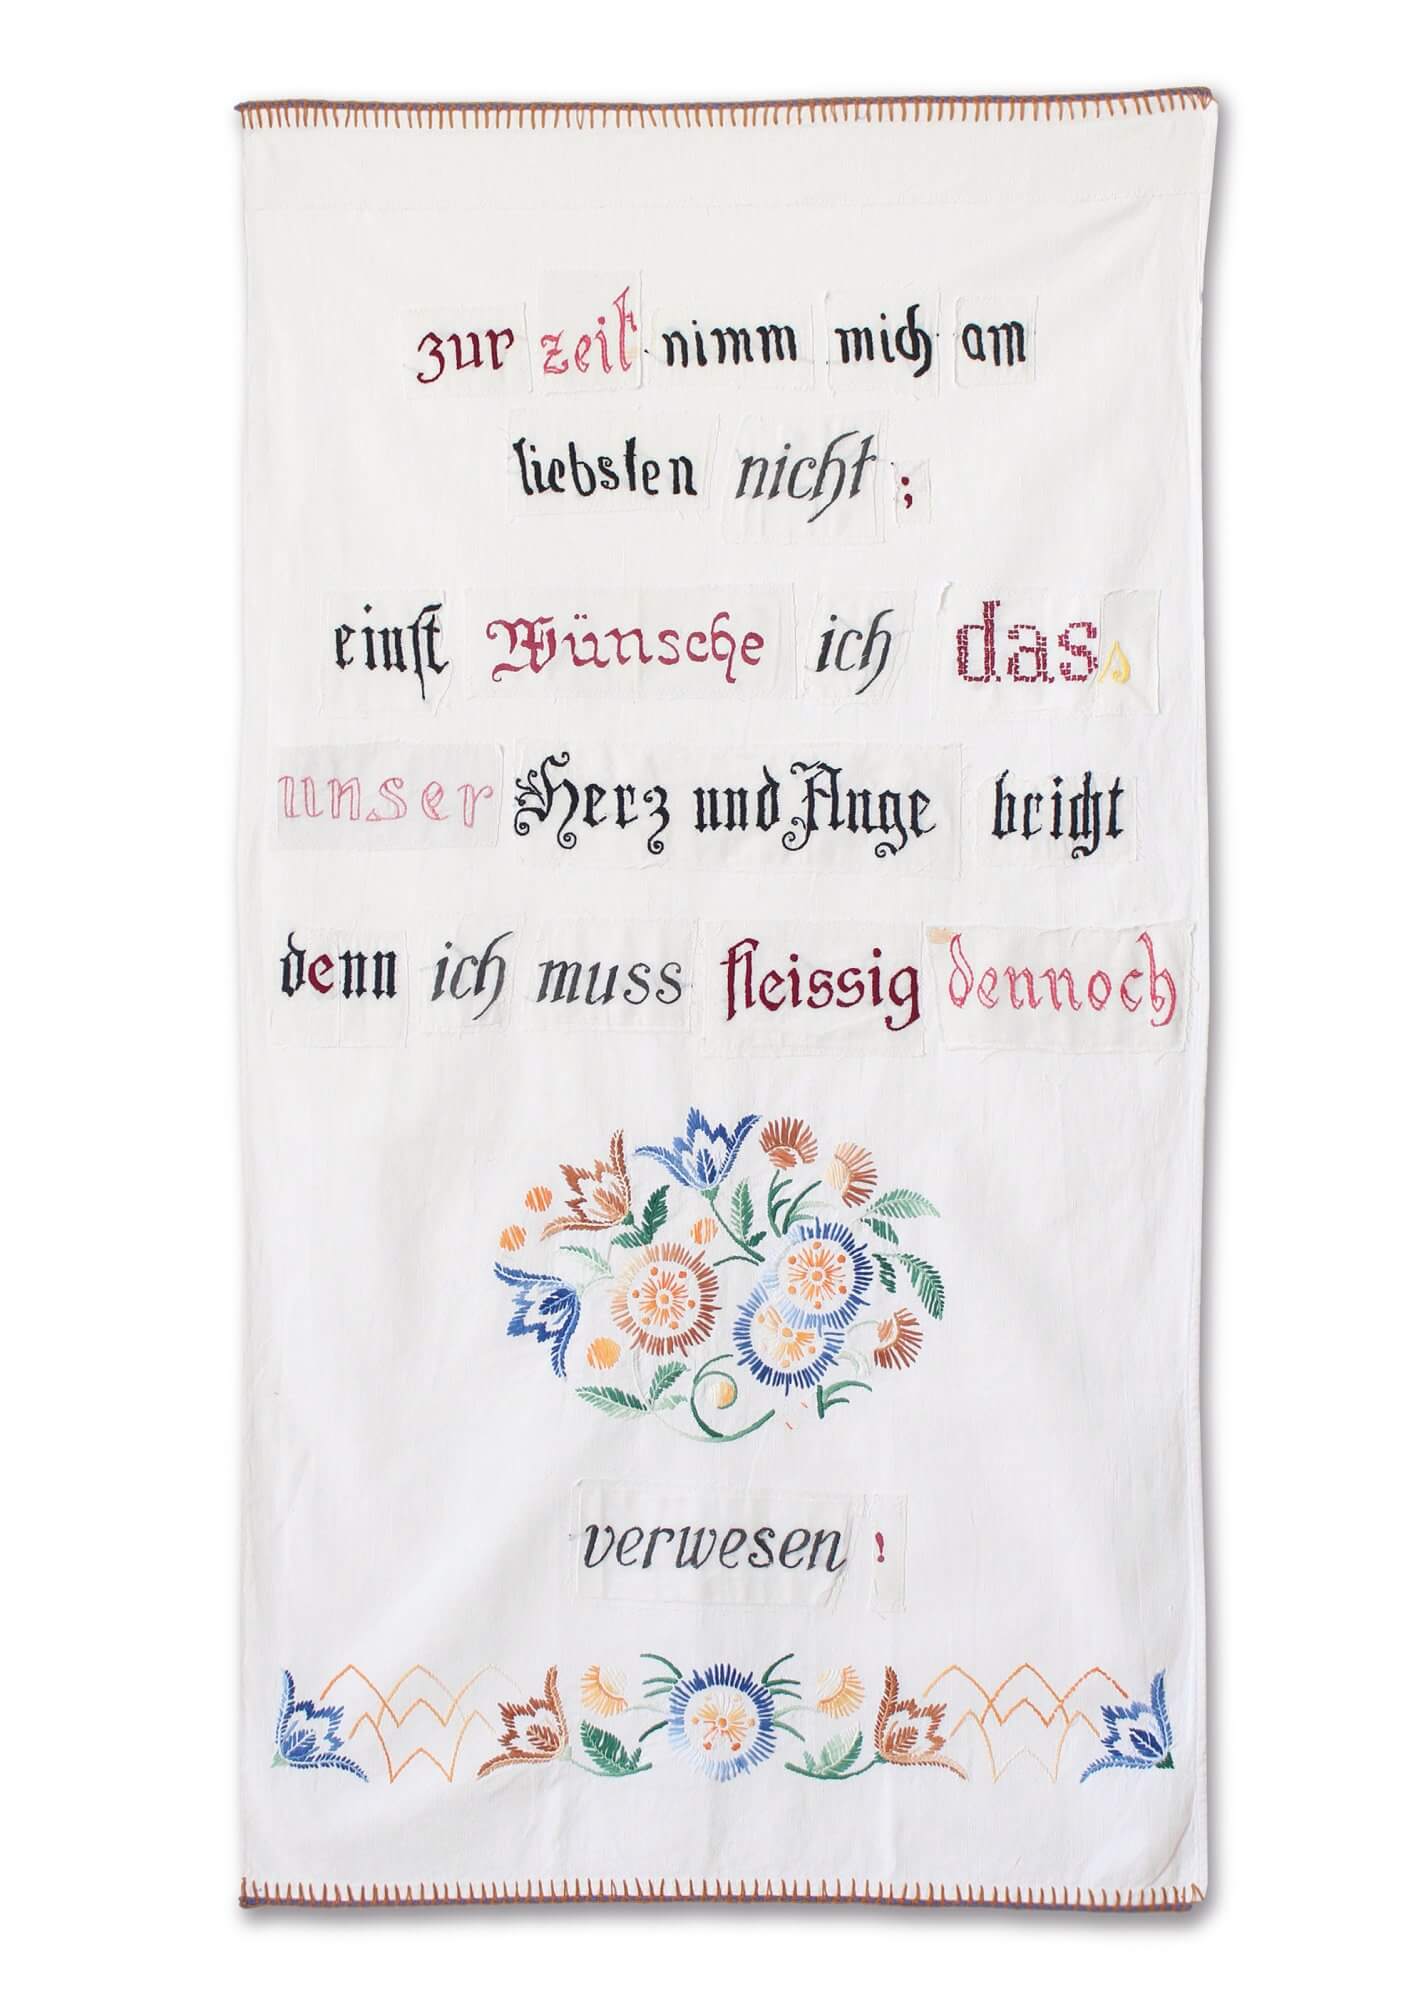 zur zeit nimm mich am
liebsten nicht ;
einst Wünsche ich dass
unser Herz und Auge bricht
denn ich muss fleissig dennoch
verwesen !